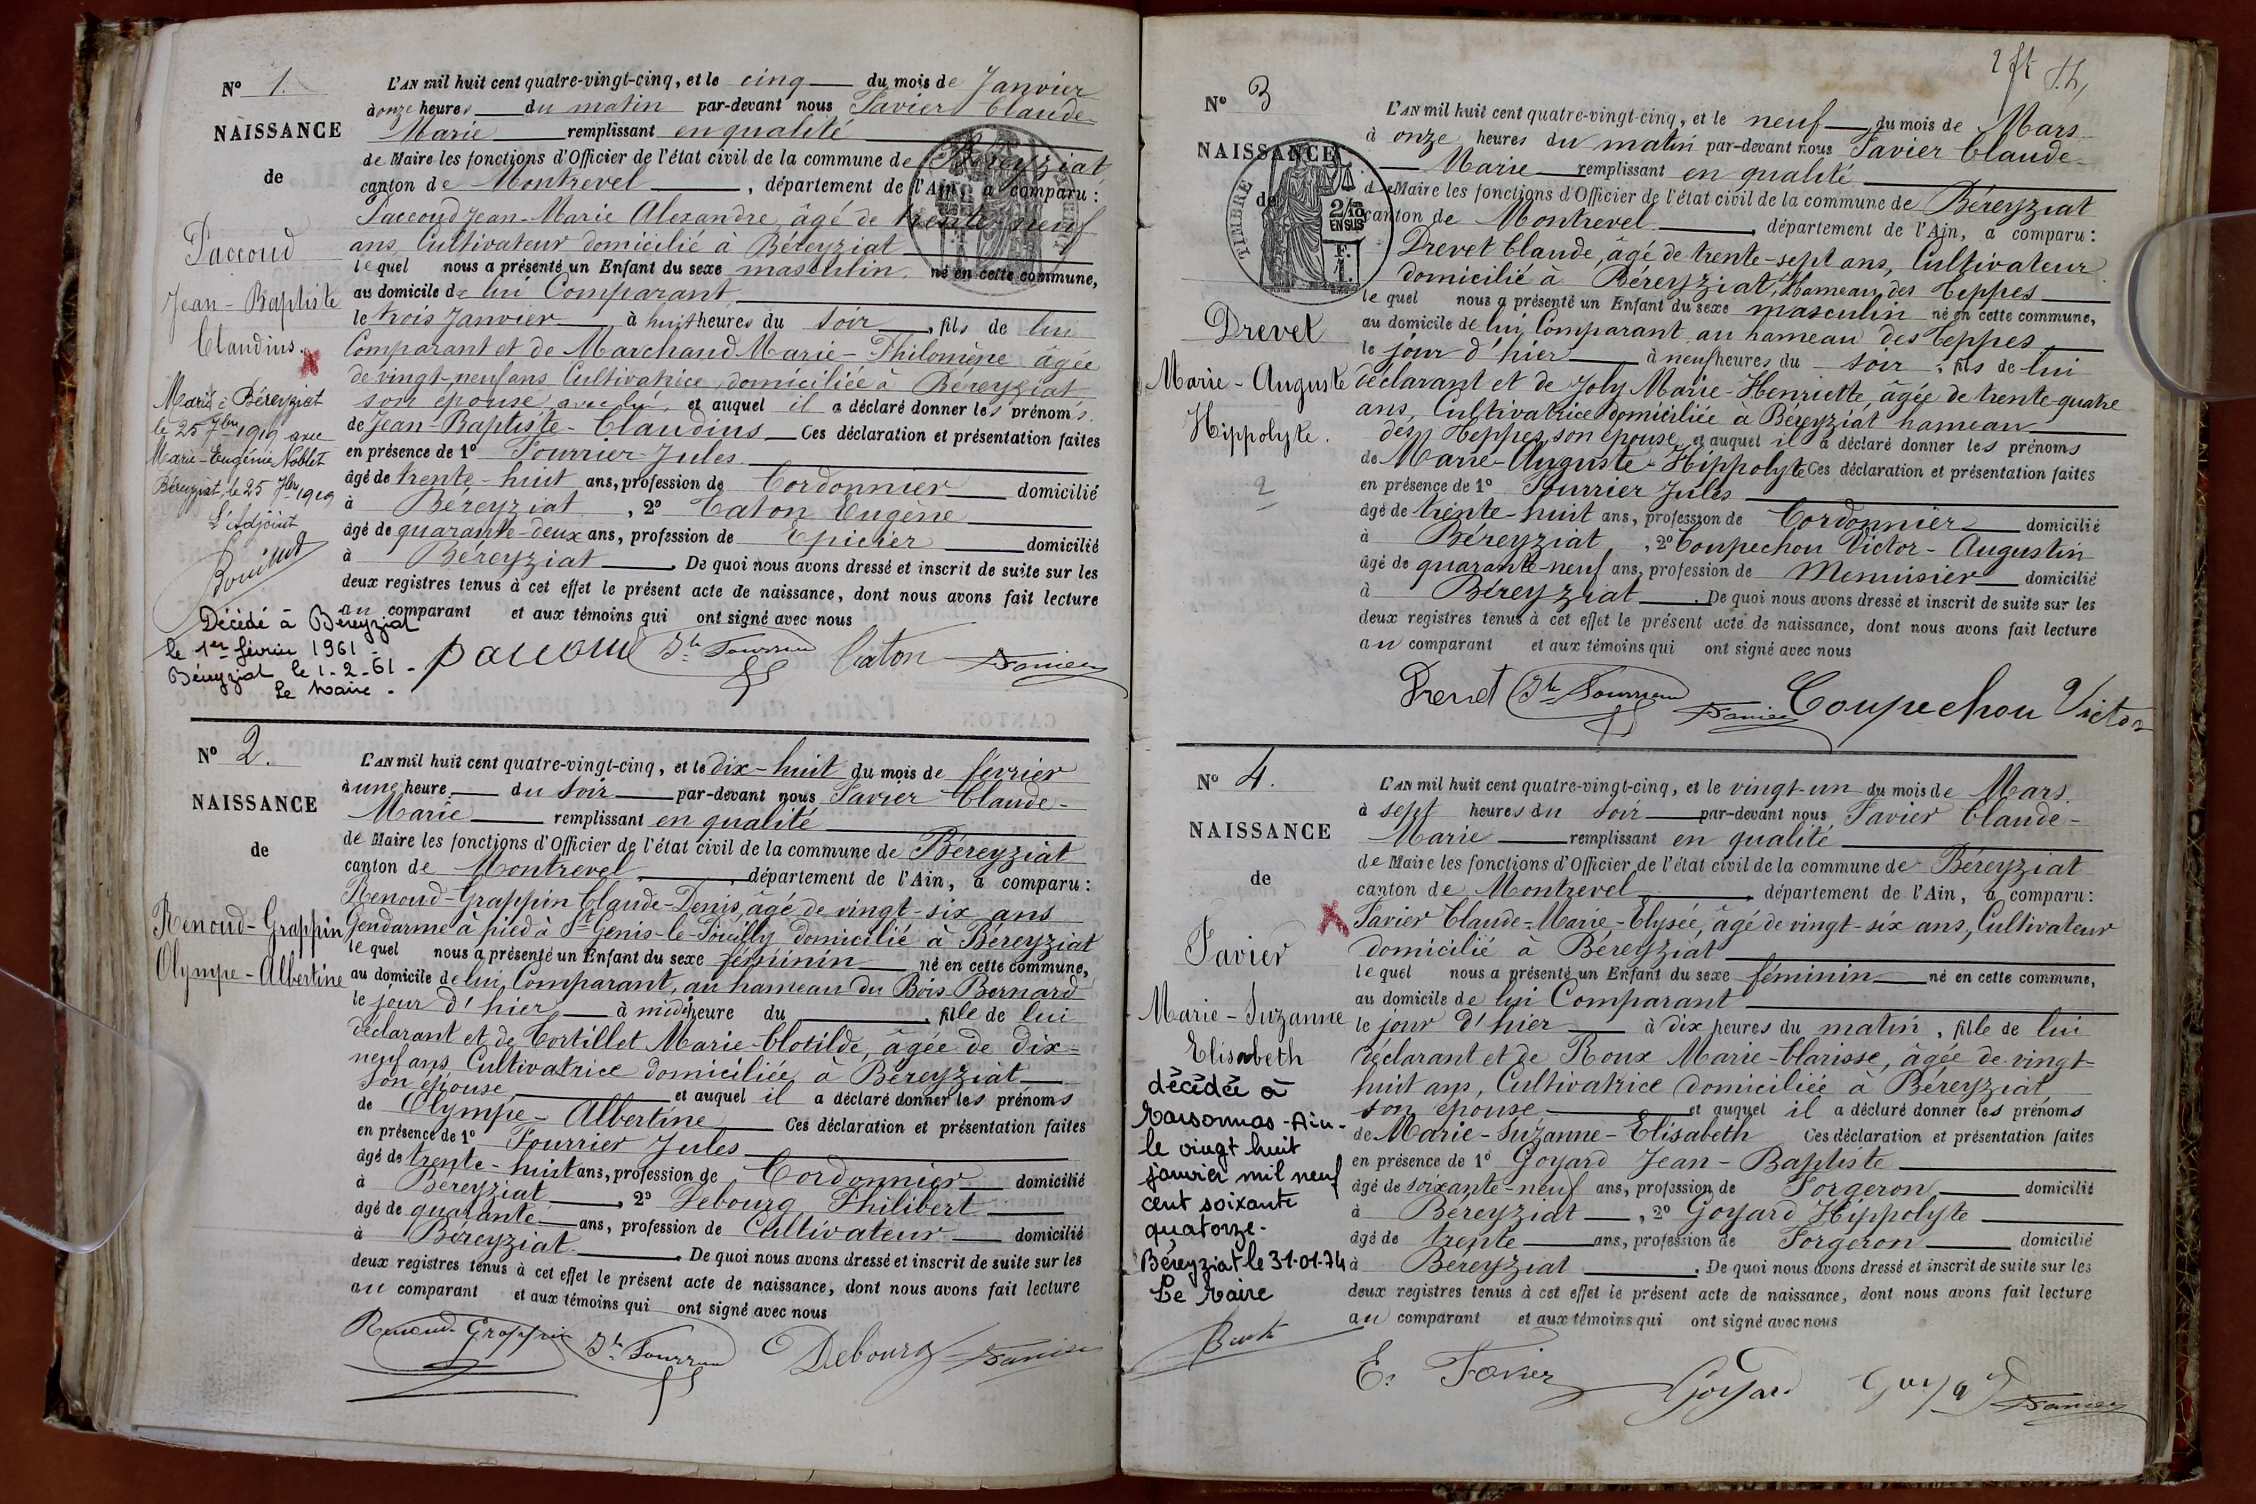 N° 1.
NAISSANCE
de
Paccoud
Jean-Baptiste
Claudius.
Marié à Béreyziat
le 25 7bre 1919 avec
Marie-Eugénie Noblet
Béreyziat, le 25 7bre 1919
L'Adjoint
Décédé à Béreyziat
le 1er février 1961
Béreyziat le 1-2-61-
Le Maire-
L'AN mil huit cent quatre-vingt-cinq, et le cinq du mois de Janvier
à onze heures du matin par-devant nous Favier Claude-
Marie remplissant en qualité
de Maire les fonctions d'Officier de l'état civil de la commune de Béreyziat
canton de Montrevel, département de l'Ain, a comparu:
Paccoud Jean-Marie Alexandre âgé de trente-neuf
ans, Cultivateur domicilié à Béreyziat
lequel nous a présenté un Enfant du sexe masculin né en cette commune,
au domicile de lui Comparant
le trois Janvier à huit heures du soir, fils de lui
Comparant et de Marchand Marie-Philomène âgée
de vingt-neuf ans Cultivatrice domiciliée à Béreyziat
son épouse avec lui, et auquel il a déclaré donner les prénoms
de Jean-Baptiste-Claudius Ces déclaration et présentation faites
en présence de 1° Fourrier Jules
âgé de trente-huit ans, profession de Cordonnier domicilié
à Béreyziat, 2° Caton Eugène
âgé de quarante-deux ans, profession de Epicier domicilié
à Béreyziat. De quoi nous avons dressé et inscrit de suite sur les
deux registres tenus à cet effet le présent acte de naissance, dont nous avons fait lecture
au comparant et aux témoins qui ont signé avec nous
Paccoud Jh Fourrier Caton Favier
N° 2.
NAISSANCE
de
Renoud-Grappin
Olympe-Albertine
L'AN mil huit cent quatre-vingt-cinq, et le dix-huit du mois de février
à une heure du soir par-devant nous Favier Claude-
Marie remplissant en qualité
de Maire les fonctions d'Officier de l'état civil de la commune de Béreyziat
canton de Montrevel, département de l'Ain, a comparu:
Renoud-Grappin Claude-Denis, âgé de vingt-six ans
Gendarme à pied à St Genis-le-Pouilly, domicilié à Béreyziat
lequel nous a présenté un Enfant du sexe féminin né en cette commune,
au domicile de lui Comparant, au hameau du Bois Bernard
le jour d'hier à midi heure du, fille de lui
déclarant et de Tortillet Marie-Clotilde, âgée de dix=
neuf ans, Cultivatrice domiciliée à Béreyziat
son épouse et auquel il a déclaré donner les prénoms
de Olympe-Albertine Ces déclaration et présentation faites
en présence de 1° Fourrier Jules
âgé de trente-huit ans, profession de Cordonnier domicilié
à Béreyziat, 2° Debourg Philibert
âgé de quarante ans, profession de Cultivateur domicilié
à Béreyziat. De quoi nous avons dressé et inscrit de suite sur les
deux registres tenus à cet effet le présent acte de naissance, dont nous avons fait lecture
au comparant et aux témoins qui ont signé avec nous
Renoud-Grappin Jh Fourrier Debourg Favier
N° 3
NAISSANCE
de
TIMBRE
2/10
EN SUS
Drevet
Marie-Auguste
Hippolyte.
2
L'AN mil huit cent quatre-vingt-cinq, et le neuf du mois de Mars
à onze heures du matin par-devant nous Favier Claude-
Marie remplissant en qualité
de Maire les fonctions d'Officier de l'état civil de la commune de Béreyziat
canton de Montrevel, département de l'Ain, a comparu:
Drevet Claude, âgé de trente-sept ans, Cultivateur
domicilié à Béreyziat, Hameau des Teppes
lequel nous a présenté un Enfant du sexe masculin né en cette commune,
au domicile de lui Comparant au hameau des Teppes
le jour d'hier à neuf heures du soir, fils de lui
déclarant et de Joly Marie-Henriette, âgée de trente-quatre
ans, Cultivatrice domiciliée à Béreyziat hameau
des Teppes, son épouse et auquel il a déclaré donner les prénoms
de Marie-Auguste-Hippolyte Ces déclaration et présentation faites
en présence de 1° Fourrier Jules
âgé de trente-huit ans, profession de Cordonnier domicilié
à Béreyziat, 2° Coupechou Victor-Augustin
âgé de quarante-neuf ans, profession de Menuisier domicilié
à Béreyziat. De quoi nous avons dressé et inscrit de suite sur les
deux registres tenus à cet effet le présent acte de naissance, dont nous avons fait lecture
au comparant et aux témoins qui ont signé avec nous
Drevet Jh Fourrier Favier Coupechou Victor
N° 4.
NAISSANCE
de
Favier
Marie-Suzanne
Elisabeth
décédée à
Marsonnas-Ain-
le vingt huit
janvier mil neuf
cent soixante
quatorze-
Béreyziat le 31-01-74
Le Maire
L'AN mil huit cent quatre-vingt-cinq, et le vingt-un du mois de Mars.
à sept heures du soir par-devant nous Favier Claude-
Marie remplissant en qualité
de Maire les fonctions d'Officier de l'état civil de la commune de Béreyziat
canton de Montrevel, département de l'Ain, a comparu:
Favier Claude-Marie-Elysée, âgé de vingt-six ans, Cultivateur
domicilié à Béreyziat
lequel nous a présenté un Enfant du sexe féminin né en cette commune,
au domicile de lui Comparant
le jour d'hier à dix heures du matin, fille de lui
déclarant et de Roux Marie-Clarisse, âgée de vingt-
huit ans, Cultivatrice domiciliée à Béreyziat
son épouse et auquel il a déclaré donner les prénoms
de Marie-Suzanne-Elisabeth Ces déclaration et présentation faites
en présence de 1° Goyard Jean-Baptiste
âgé de soixante-neuf ans, profession de Forgeron domicilié
à Béreyziat, 2° Goyard Hippolyte
âgé de trente ans, profession de Forgeron domicilié
à Béreyziat. De quoi nous avons dressé et inscrit de suite sur les
deux registres tenus à cet effet le présent acte de naissance, dont nous avons fait lecture
au comparant et aux témoins qui ont signé avec nous
E. Favier Goyard Goyard Favier